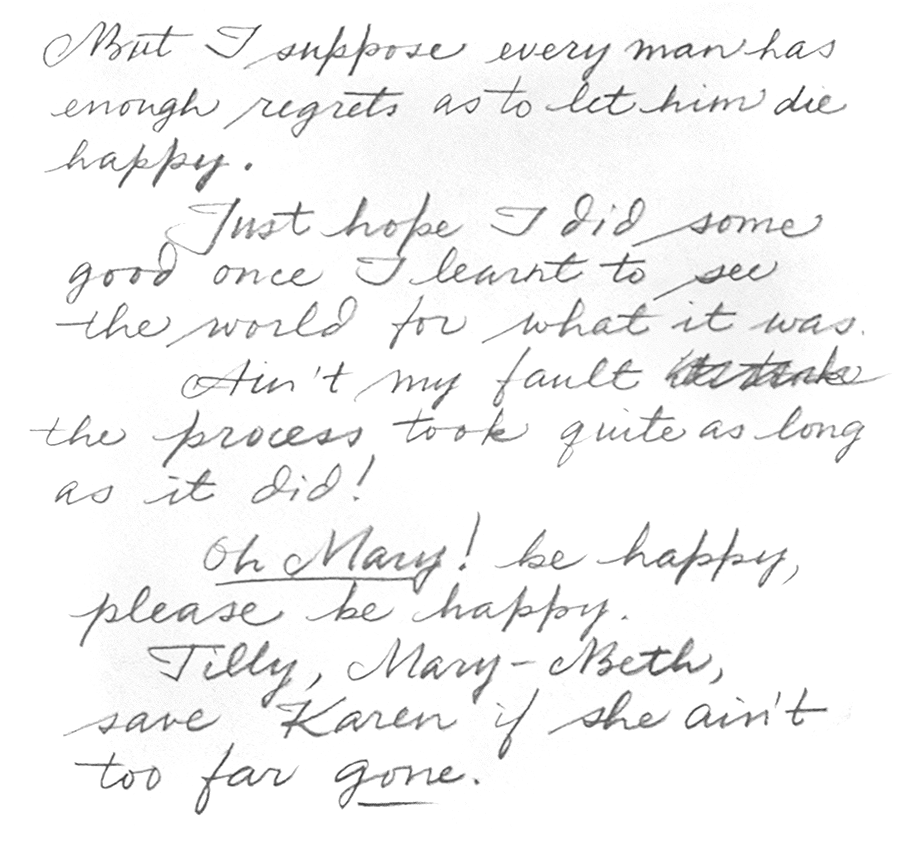 But I suppose every man has
enough regrets as to let him die
happy.
Just hope I did some
good once I learnt to see
the world for what it was.
Ain't my fault
the process took quite as long
as it did!
Oh Mary! be happy,
please be happy.
Tilly, Mary-Beth,
save Karen if she ain't
too far gone.